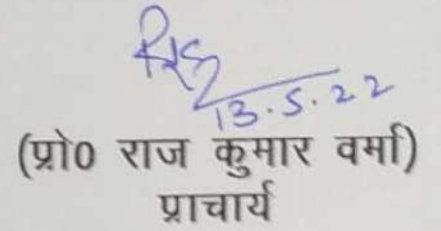 13.5.22
(प्रो0 राज कुमार वर्मा)
प्राचार्य